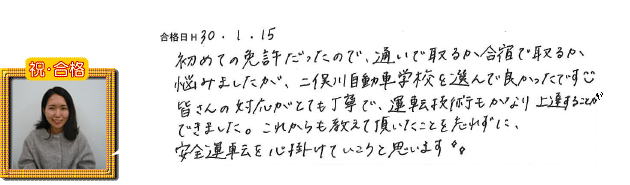 祝・合格
合格日 H 30.1.15
初めての免許だったので、通いで取るか合宿で取るか、
悩みましたが、二俣川自動車学校を選んで良かったです☺
皆さんの対応がとても丁寧で、運転技術もかなり上達することが
できました。これからも教えて頂いたことを忘れずに、
安全運転を心掛けていこうと思います。